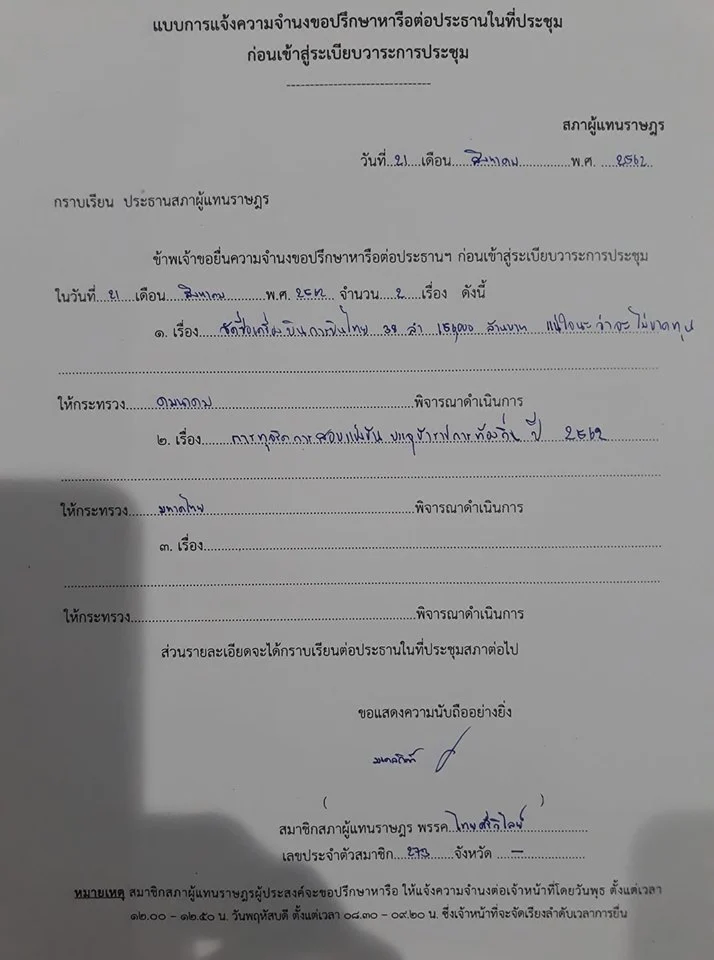 แบบการแจ้งความจำนงขอปรึกษาหารือต่อประธานในที่ประชุม
ก่อนเข้าสู่ระเบียบวาระการประชุม
สภาผู้แทนราษฎร
วันที่ 21 เดือน สิงหาคม พ.ศ. 2562
กราบเรียน ประธานสภาผู้แทนราษฎร
ข้าพเจ้าขอยื่นความจำนงขอปรึกษาหารือต่อประธานฯ ก่อนเข้าสู่ระเบียบวาระการประชุม
ในวันที่ 21 เดือน สิงหาคม พ.ศ. 2562 จำนวน 2 เรื่อง ดังนี้
๑. เรื่อง จัดซื้อเครื่องบินการบินไทย 38 ลำ ล้านบาท แน่ใจนะว่าจะไม่ขาดทุน
ให้กระทรวง คมนาคม พิจารณาดำเนินการ
๒. เรื่อง การทุจริตการสอบแข่งขัน บรรจุข้าราชการท้องถิ่น ปี 2562
ให้กระทรวง มหาดไทย พิจารณาดำเนินการ
๓. เรื่อง
ให้กระทรวง พิจารณาดำเนินการ
ส่วนรายละเอียดจะได้กราบเรียนต่อประธานในที่ประชุมสภาต่อไป
ขอแสดงความนับถืออย่างยิ่ง
( )
สมาชิกสภาผู้แทนราษฎร พรรค ไทยศรีวิไลย์
เลขประจำตัวสมาชิก 273 จังหวัด –
หมายเหตุ สมาชิกสภาผู้แทนราษฎรผู้ประสงค์จะขอปรึกษาหารือ ให้แจ้งความจำนงต่อเจ้าหน้าที่โดยวันพุธ ตั้งแต่เวลา
๑๒.๐๐ – ๑๒.๕๐ น. วันพฤหัสบดี ตั้งแต่เวลา ๐๘.๓๐ – ๐๙.๒๐ น. ซึ่งเจ้าหน้าที่จะจัดเรียงลำดับเวลาการยื่น